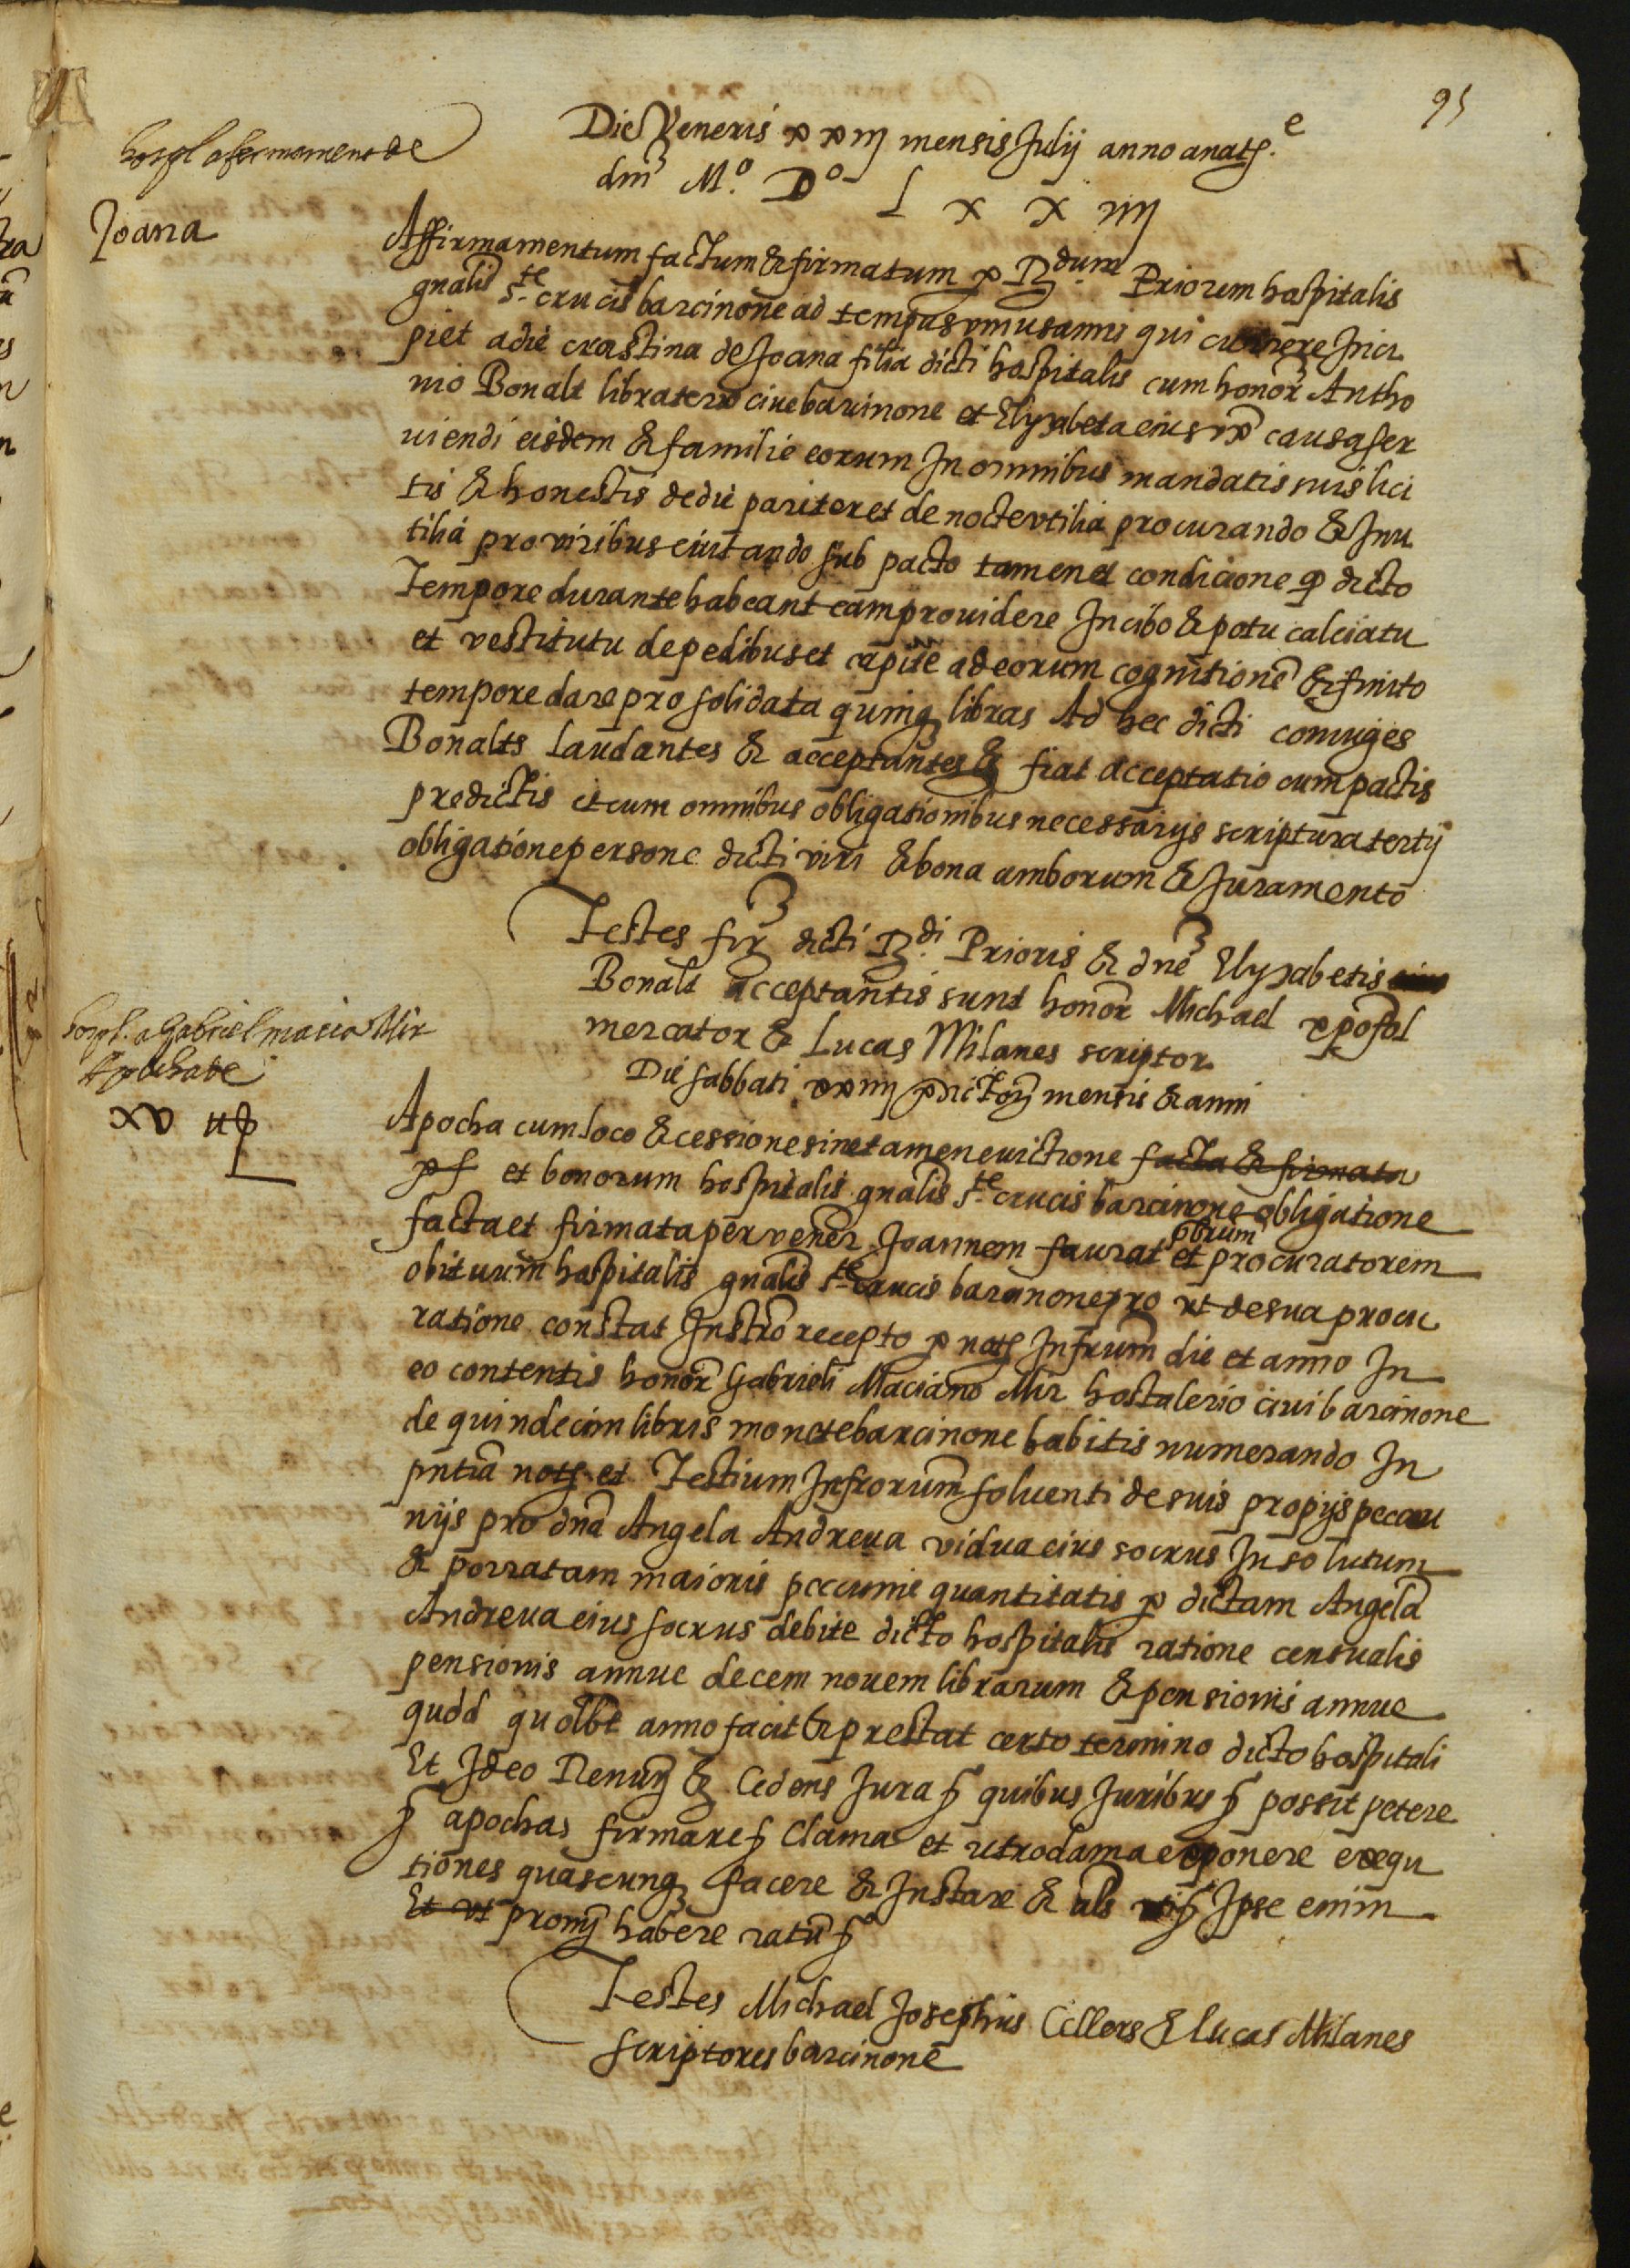 95
Die Veneris xxiij mensis Julij anno a nat.e
dnj M.o D.o L x x iiij
hospl afermament de
Joana
Affirmamentum factum & firmatum p R.dum Priorem hospitalis
gnalis s.te crucis barcinone ad tempus vnius anni qui currere Inci
piet a die crastina de Joana filia dicti hospitalis cum honor Antho
nio Bonalt libraterio ciue barcinone et Elyzabeta eius vx causa ser
uiendi eisdem & familie eorum In omnibus mandatis suis lici
tis & honestis de die pariter et de nocte vtilia procurando & Inu
tilia pro viribus euitando sub pacto tamen et condicione q dicto
Tempore durante habeant eam prouidere In cibo & potu calciatu
et vestitutu de pedibus et capite ad eorum cognitione & finito
tempore dare pro solidata quinq libras Ad hec dicti coniuges
Bonalts laudantes & acceptantes & fiat acceptatio cum pactis
predictis et cum omnibus obligationibus necessarijs scriptura tertij
obligatione persone dicti viri & bona amborum & Juramento
Testes fir dicti R.di Prioris & dne Elyzabetis
Bonalt acceptantis sunt honor Michael xpofol
mercator & Lucas Milanes scriptor
hospl. a Gabriel macia Mir
Apocha de
xv
Die sabbati xxiiij pdictor mensis & anni
Apocha cum loco & cessione sine tamen euictione facta & firmata
et bonorum hospitalis gnalis s.te crucis barcinone obligatione
facta et firmata per vener Joannem faurat pbrum et procuratorem
obituum hospitalis gnalis s.te crucis barcinone pro vt de sua procu
ratione constat Instro recepto p not Infrum die et anno In
eo contentis honor Gabrieli Maciano Mir hostalerio ciui barcinone
de quindecim libris monete barcinone habitis numerando In
pntia not et Testium Infrorum soluenti de suis propijs peccu
nijs pro dna Angela Andreua vidua eius socrus In solutum
& porratam maioris peccunie quantitatis p dictam Angela
Andreua eius socrus debite dicto hospitalis ratione censualis
pensionis annue decem nouem librarum & pensionis annue
quod quolbt anno facit & prestat certo termino dicto hospitali
Et Ideo Renun & Cedens Jura quibus Juribus possit petere
apochas firmare Clama et retroclama exponere exequ
tiones quascunq facere & Instare & als Ipse enim
Et vt promj habere ratu
Testes Michael Josephus Cellers & lucas Milanes
scriptores barcinone